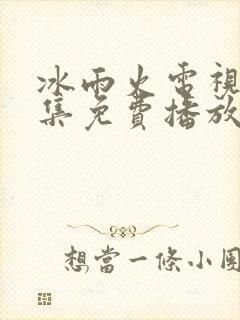 冰雨火電視
集免費播放
想當一條小團